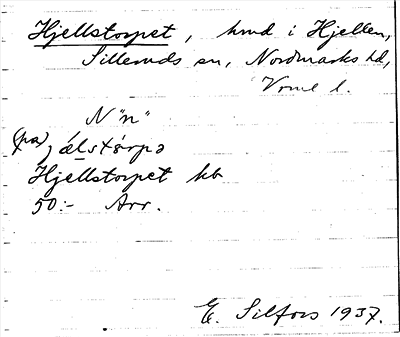 Hjellstorpet, hmd i Hjellen,
Silleruds sn, Nordmarks hd,
Vrml l.
N "n"
(på) jälstårpə
Hjellstorpet kb
50:- Arr.
E. Silfors 1937.